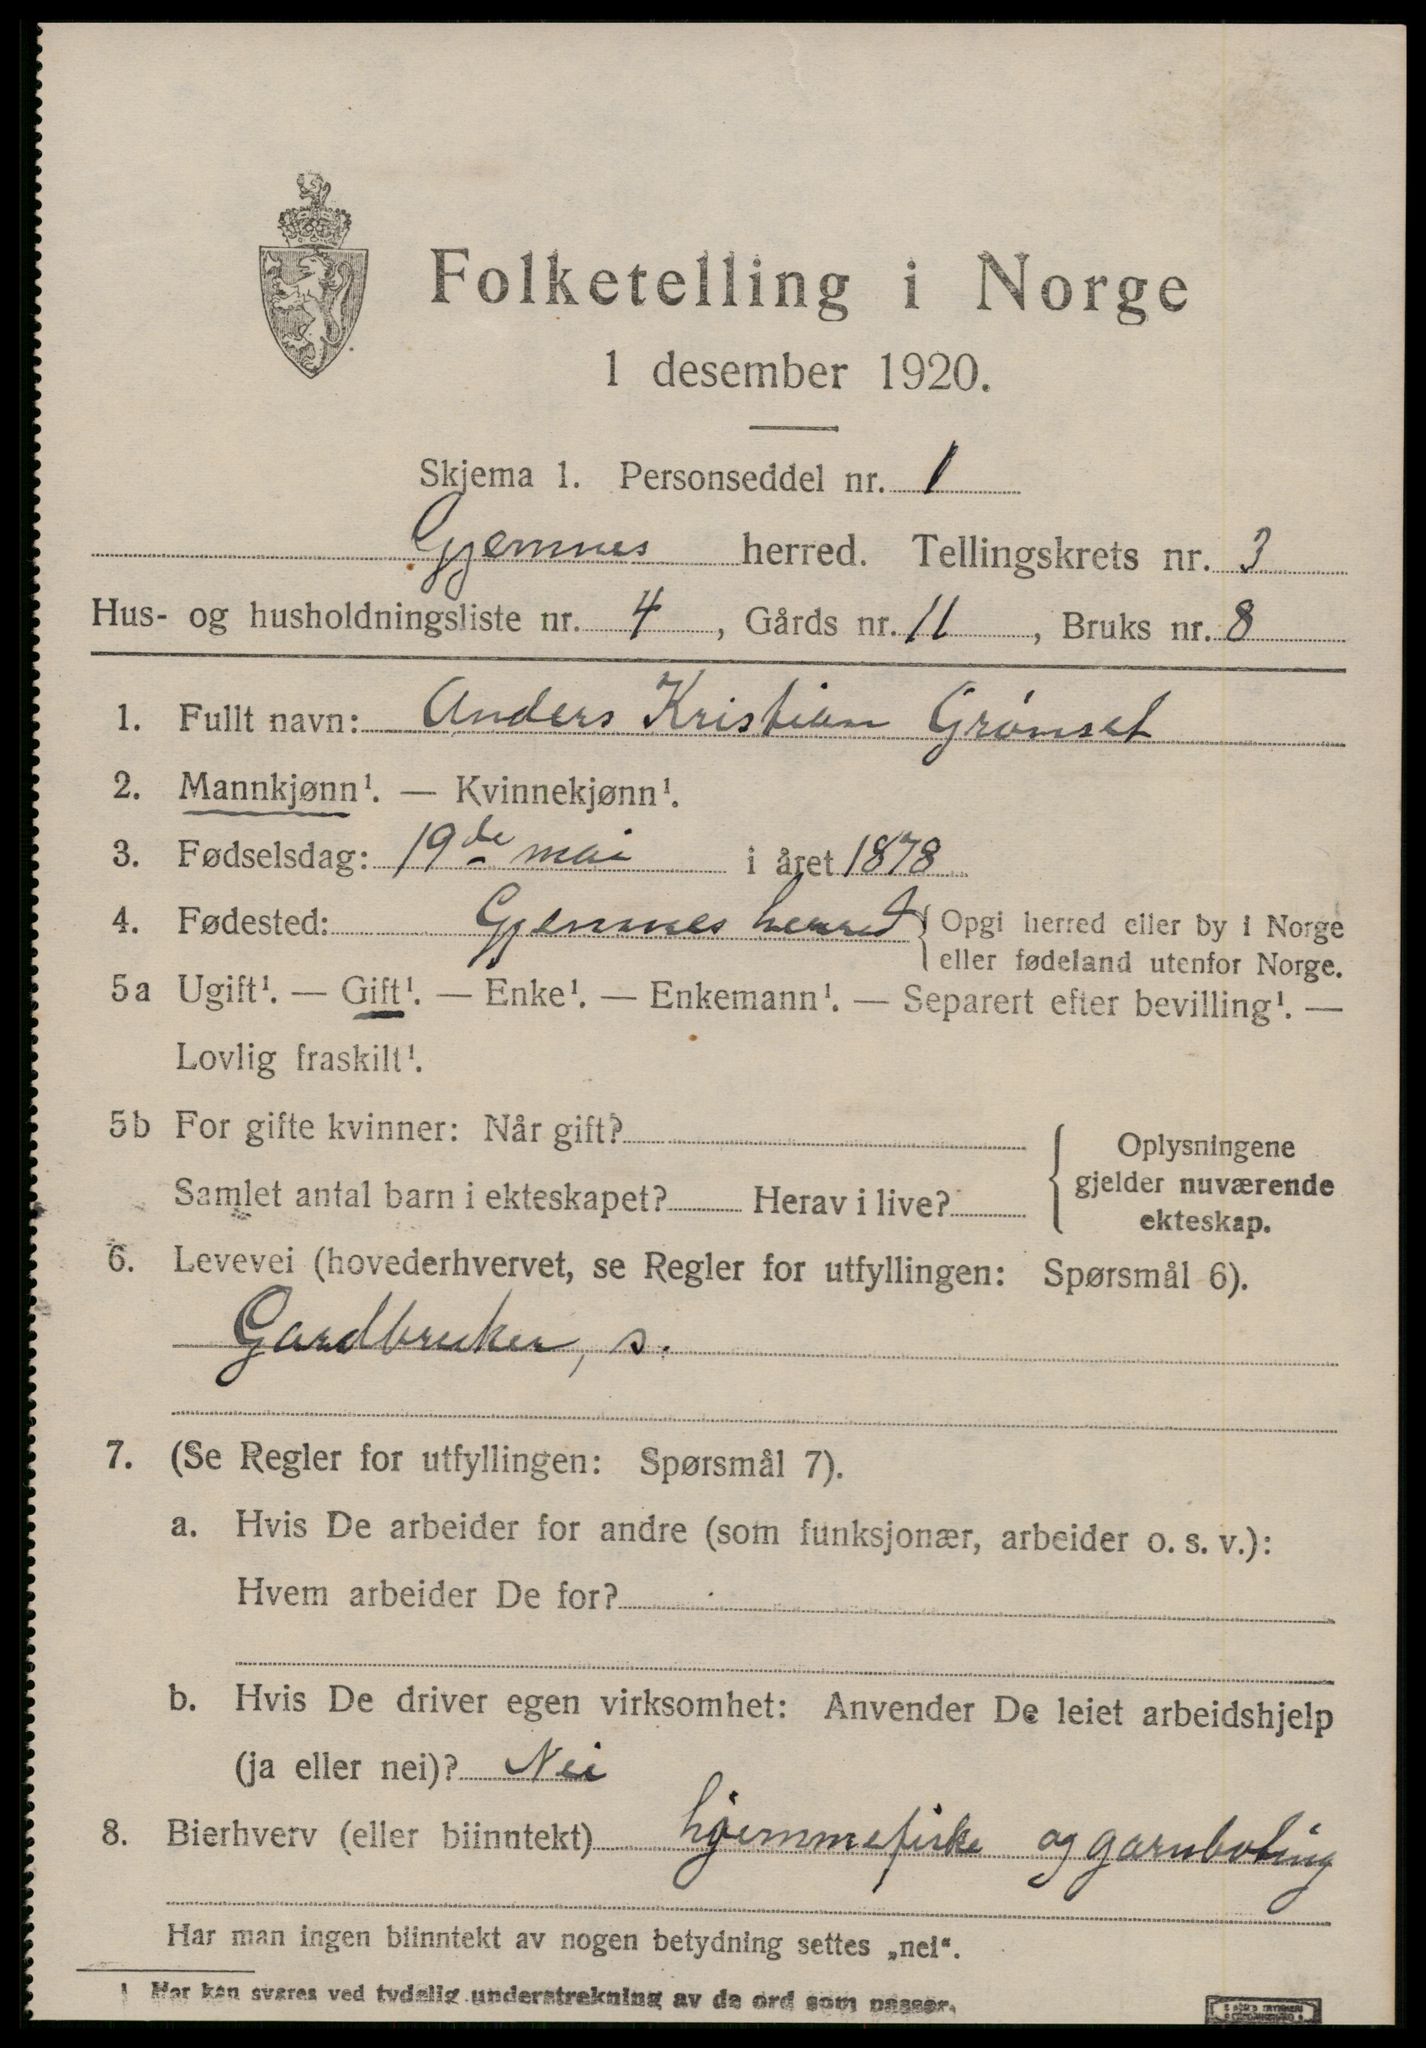 Folketelling i Norge
1 desember 1920.
Skjema 1. Personseddel nr. 1
Gjemnes herred. Tellingskrets nr. 3
Hus- og husholdningsliste nr. 4, Gårds nr. 11, Bruks nr. 8
1. Fullt navn: Anders Kristian Grønset
2. Mannkjønn¹. — Kvinnekjønn¹.
3. Fødselsdag: 19de mai i året 1878
4. Fødested: Gjemnes herred { Opgi herred eller by i Norge
eller fødeland utenfor Norge.
5a Ugift¹. — Gift¹. — Enke¹. — Enkemann¹. — Separert efter bevilling¹. —
Lovlig fraskilt¹.
5b For gifte kvinner: Når gift?
Samlet antal barn i ekteskapet? Herav i live?
Oplysningene
gjelder nuværende
ekteskap.
6. Levevei (hovederhvervet, se Regler for utfyllingen: Spørsmål 6).
Gardbruker, s.
7. (Se Regler for utfyllingen: Spørsmål 7).
a. Hvis De arbeider for andre (som funksjonær, arbeider o. s. v.):
Hvem arbeider De for?
b. Hvis De driver egen virksomhet: Anvender De leiet arbeidshjelp
(ja eller nei)? Nei
8. Bierhverv (eller biinntekt) hjemmefiske og garnbøting
Har man ingen biinntekt av nogen betydning settes „nei“.
1 Her kan svares ved tydelig understrekning av de ord som passer.